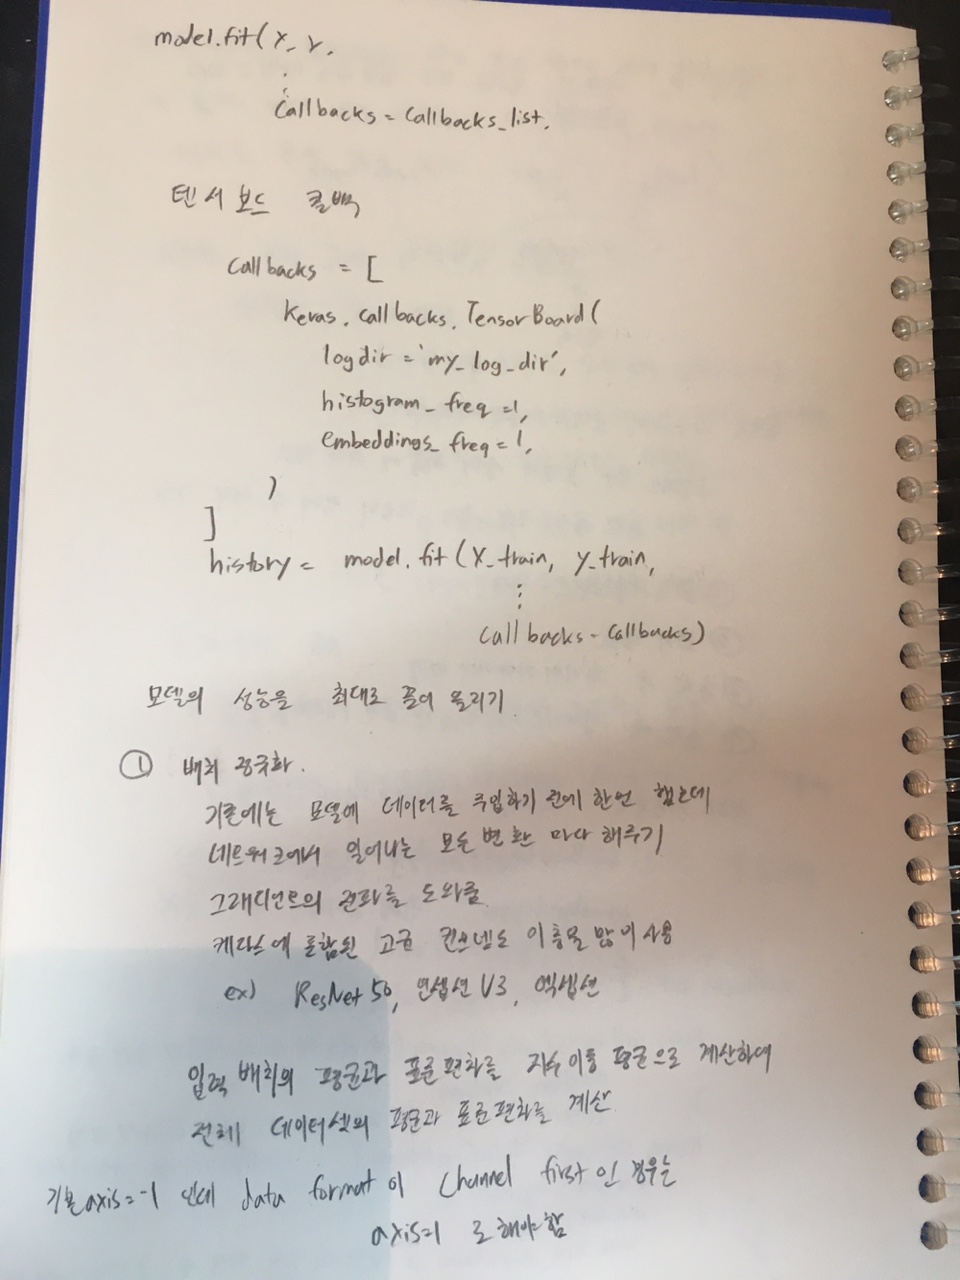 model.fit(X, Y,
⋮
callbacks = callbacks_list,
텐서보드 콜백
callbacks = [
keras.callbacks.TensorBoard(
logdir = 'my_log_dir',
histogram_freq = 1,
embeddings_freq = 1,
)
]
history = model.fit(X_train, y_train,
⋮
callbacks = callbacks)
모델의 성능을 최대로 끌어 올리기
① 배치 정규화.
기존에는 모델에 데이터를 주입하기 전에 한번 했는데
네트워크에서 일어나는 모든 변환 마다 해주기
그래디언트의 전파를 도와줌.
케라스에 포함된 고급 컨브넷도 이 층을 많이 사용
ex) ResNet 50, 인셉션 V3, 엑셉션
입력 배치의 평균과 표준편차를 지수이동 평균으로 계산하여
전체 데이터셋의 평균과 표준편차를 계산.
기본 axis=-1 인데 data format 이 channel first 인 경우는
axis=1 로 해야함